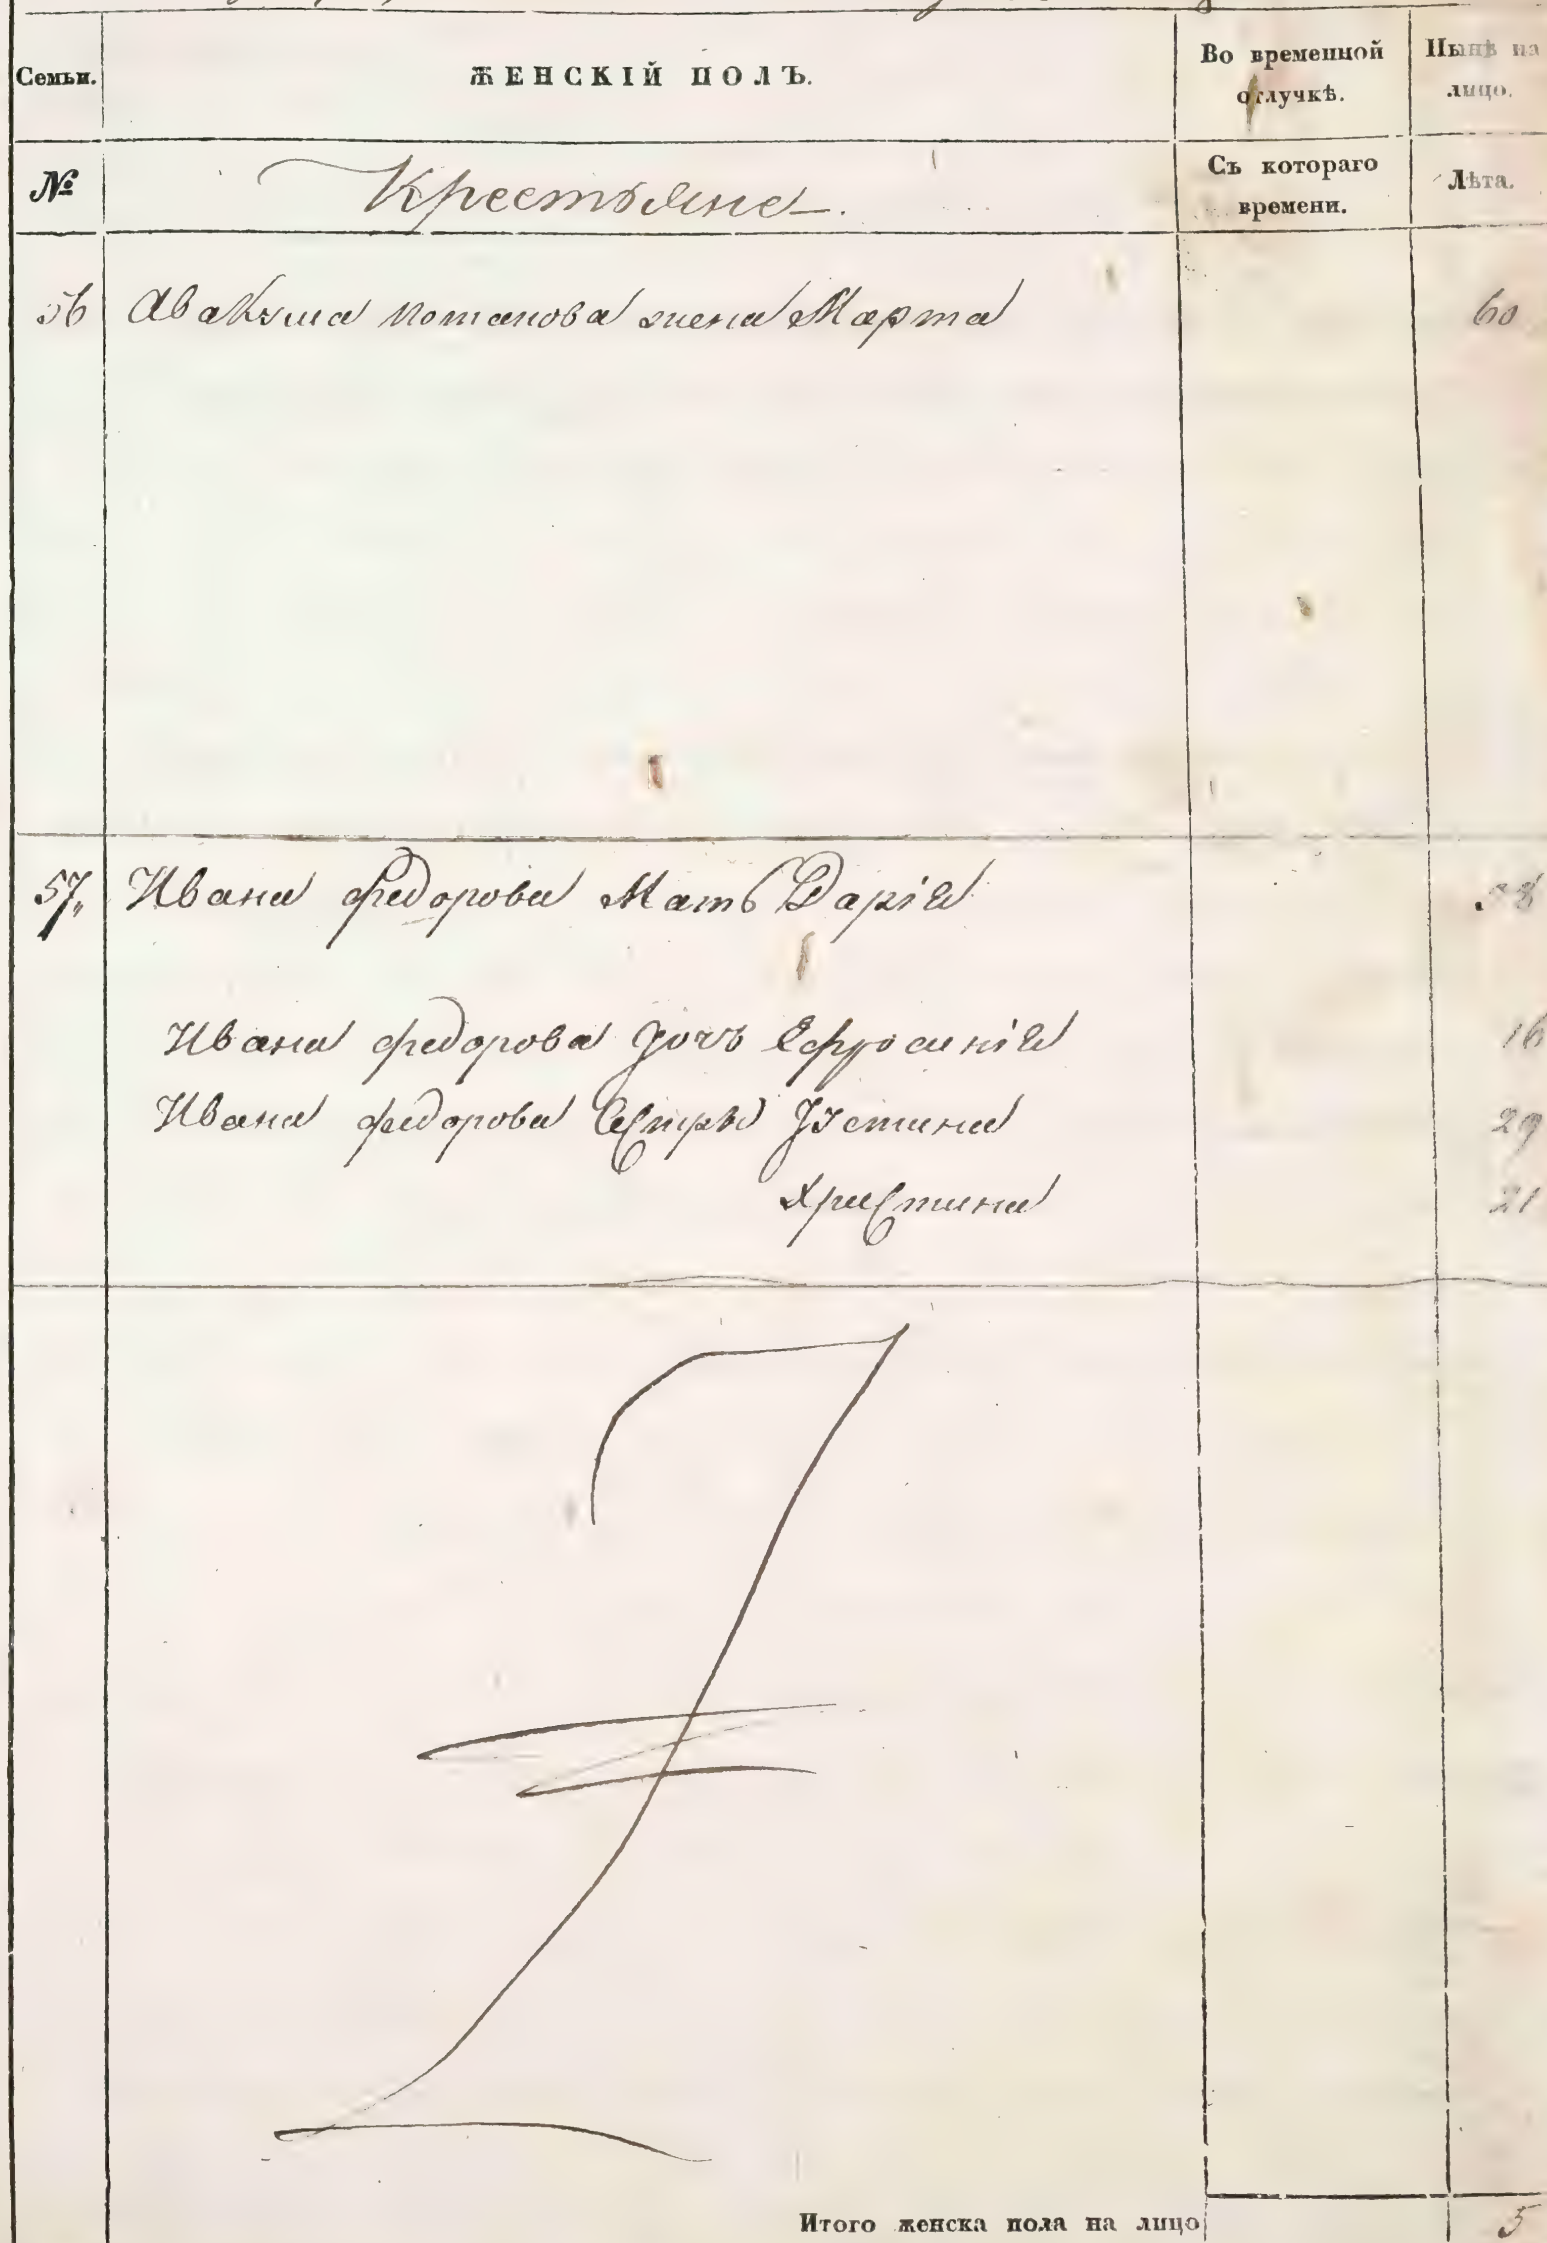 Семьи.
ЖЕНСКІЙ ПОЛЪ.
Во временной
отлучкѣ.
Нынѣ на
лицо.
№
Крестьяне.
Съ котораго
времени.
Лѣта.
56 Авакума потапова жена Марта 60
57 Ивана федорова Мать Дарія
Ивана федорова дочь Ефросинія 16
Ивана федорова Сестры Устина 29
Христина 21
Итого женска пола на лицо 5